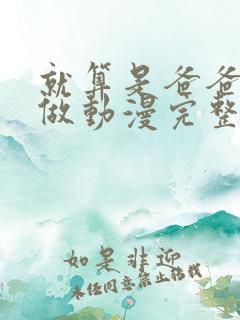 就算是爸爸
做動漫完整
如是非迎
未任同意禁止转载